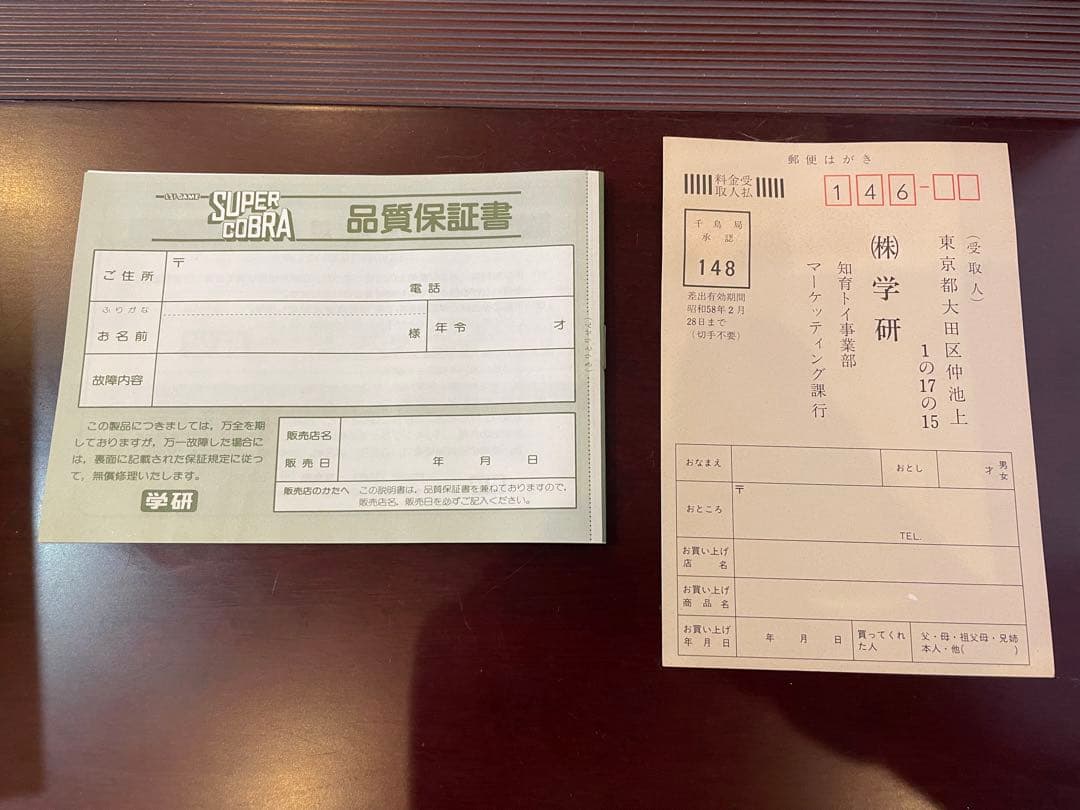 LSI GAME
SUPER
COBRA
品質保証書
ご住所
〒
電話
ふりがな
お名前
様
年令
才
故障内容
この製品につきましては、万全を期
しておりますが、万一故障した場合に
は、裏面に記載された保証規定に従っ
て、無償修理いたします。
学研
販売店名
販売日
年 月 日
販売店のかたへ
この説明書は、品質保証書を兼ねておりますので、
販売店名、販売日を必ずご記入ください。
郵便はがき
料金受
取人払
146-
千鳥局
承認
148
差出有効期間
昭和58年2月
28日まで
(切手不要)
(受取人)
東京都大田区仲池上
1の17の15
㈱学研
知育トイ事業部
マーケッティング課行
おなまえ
おとし
才
男
女
おところ
〒
TEL.
お買い上げ
店名
お買い上げ
商品名
お買い上げ
年月日
年 月 日
買ってくれ
た人
父・母・祖父母・兄姉
本人・他( )